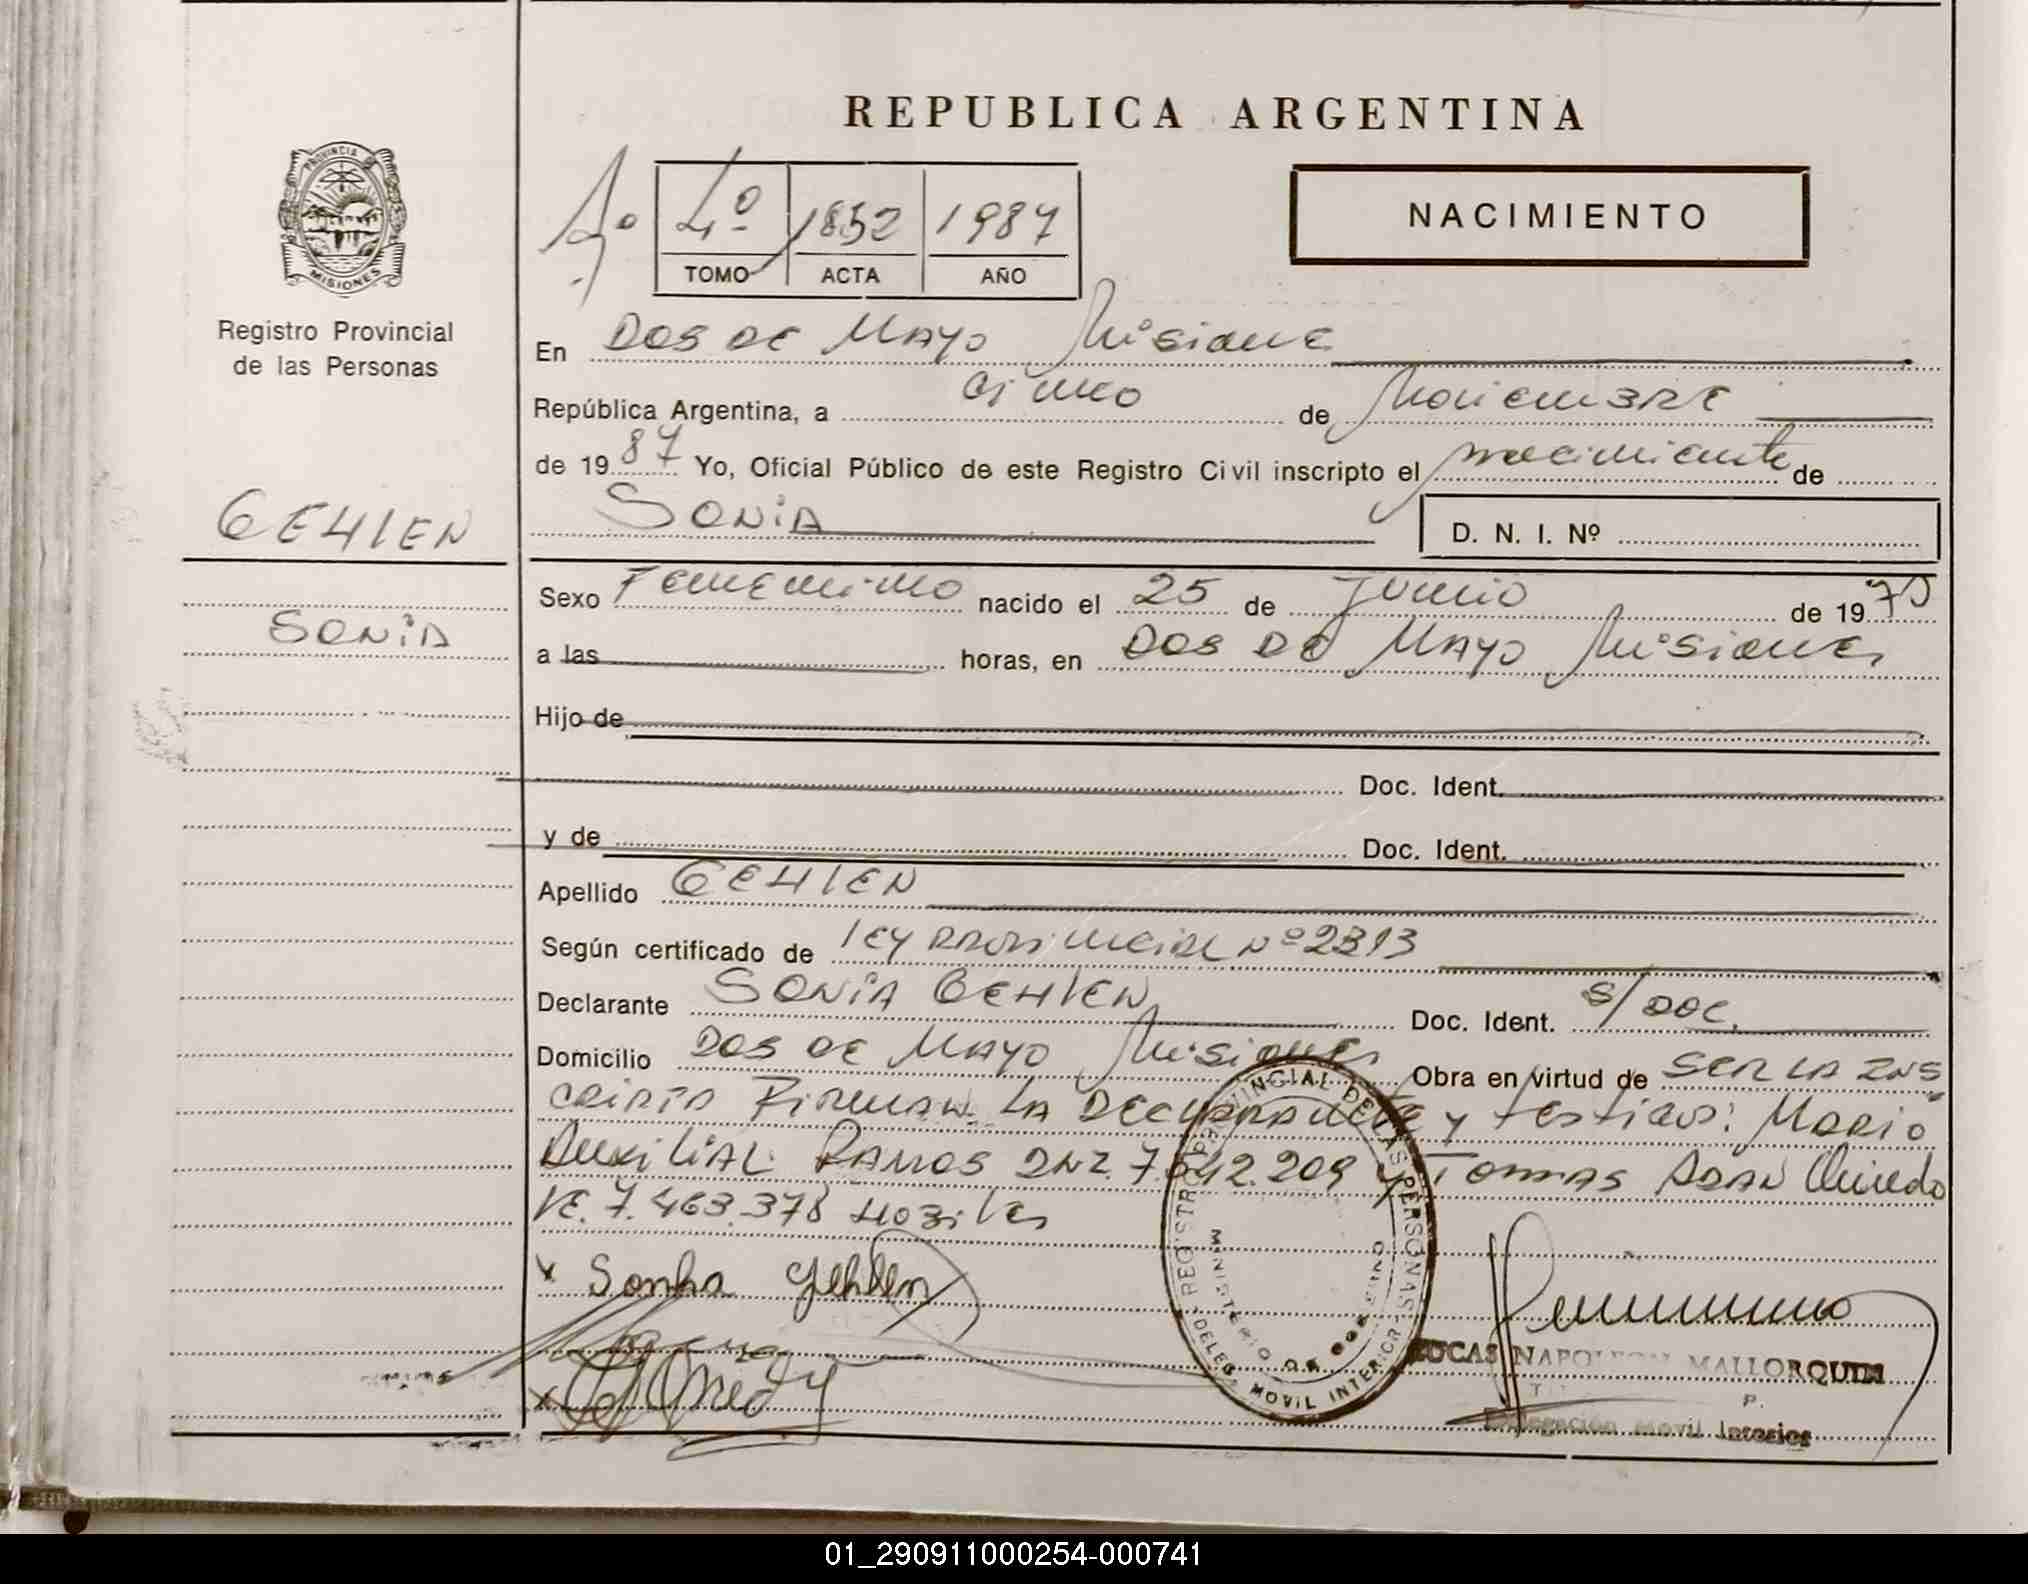 REPUBLICA ARGENTINA
PROVINCIA DE
MISIONES
Registro Provincial
de las Personas
4º 1852 1987
TOMO ACTA AÑO
NACIMIENTO
En DOS DE MAYO Misiones
República Argentina, a cinco de Noviembre
de 1987 Yo, Oficial Público de este Registro Civil inscripto el nacimiento de
SONIA
D. N. I. Nº
GEHLEN
SONIA
Sexo Femenino nacido el 25 de Junio de 19
a las horas, en DOS DE MAYO Misiones
Hijo de
Doc. Ident.
y de Doc. Ident.
Apellido GEHLEN
Según certificado de ley provincial Nº 2313
Declarante SONIA GEHLEN Doc. Ident. S/DOC.
Domicilio DOS DE MAYO Misiones Obra en virtud de SER LA INS
CRIPTA Firman LA DECLARANTE y testigos: MARIO
AUXILIAL RAMOS DNI. 7.542.209 y TOMAS ADAN Oviedo
7.463.378 Hábiles
x Sonha Gehlen
x
REGISTRO PROVINCIAL DE LAS PERSONAS
MINISTERIO DE GOBIERNO
DELEG. MOVIL INTERIOR
LUCAS NAPOLEON MALLORQUIN
Delegación Movil Interior
01_290911000254-000741